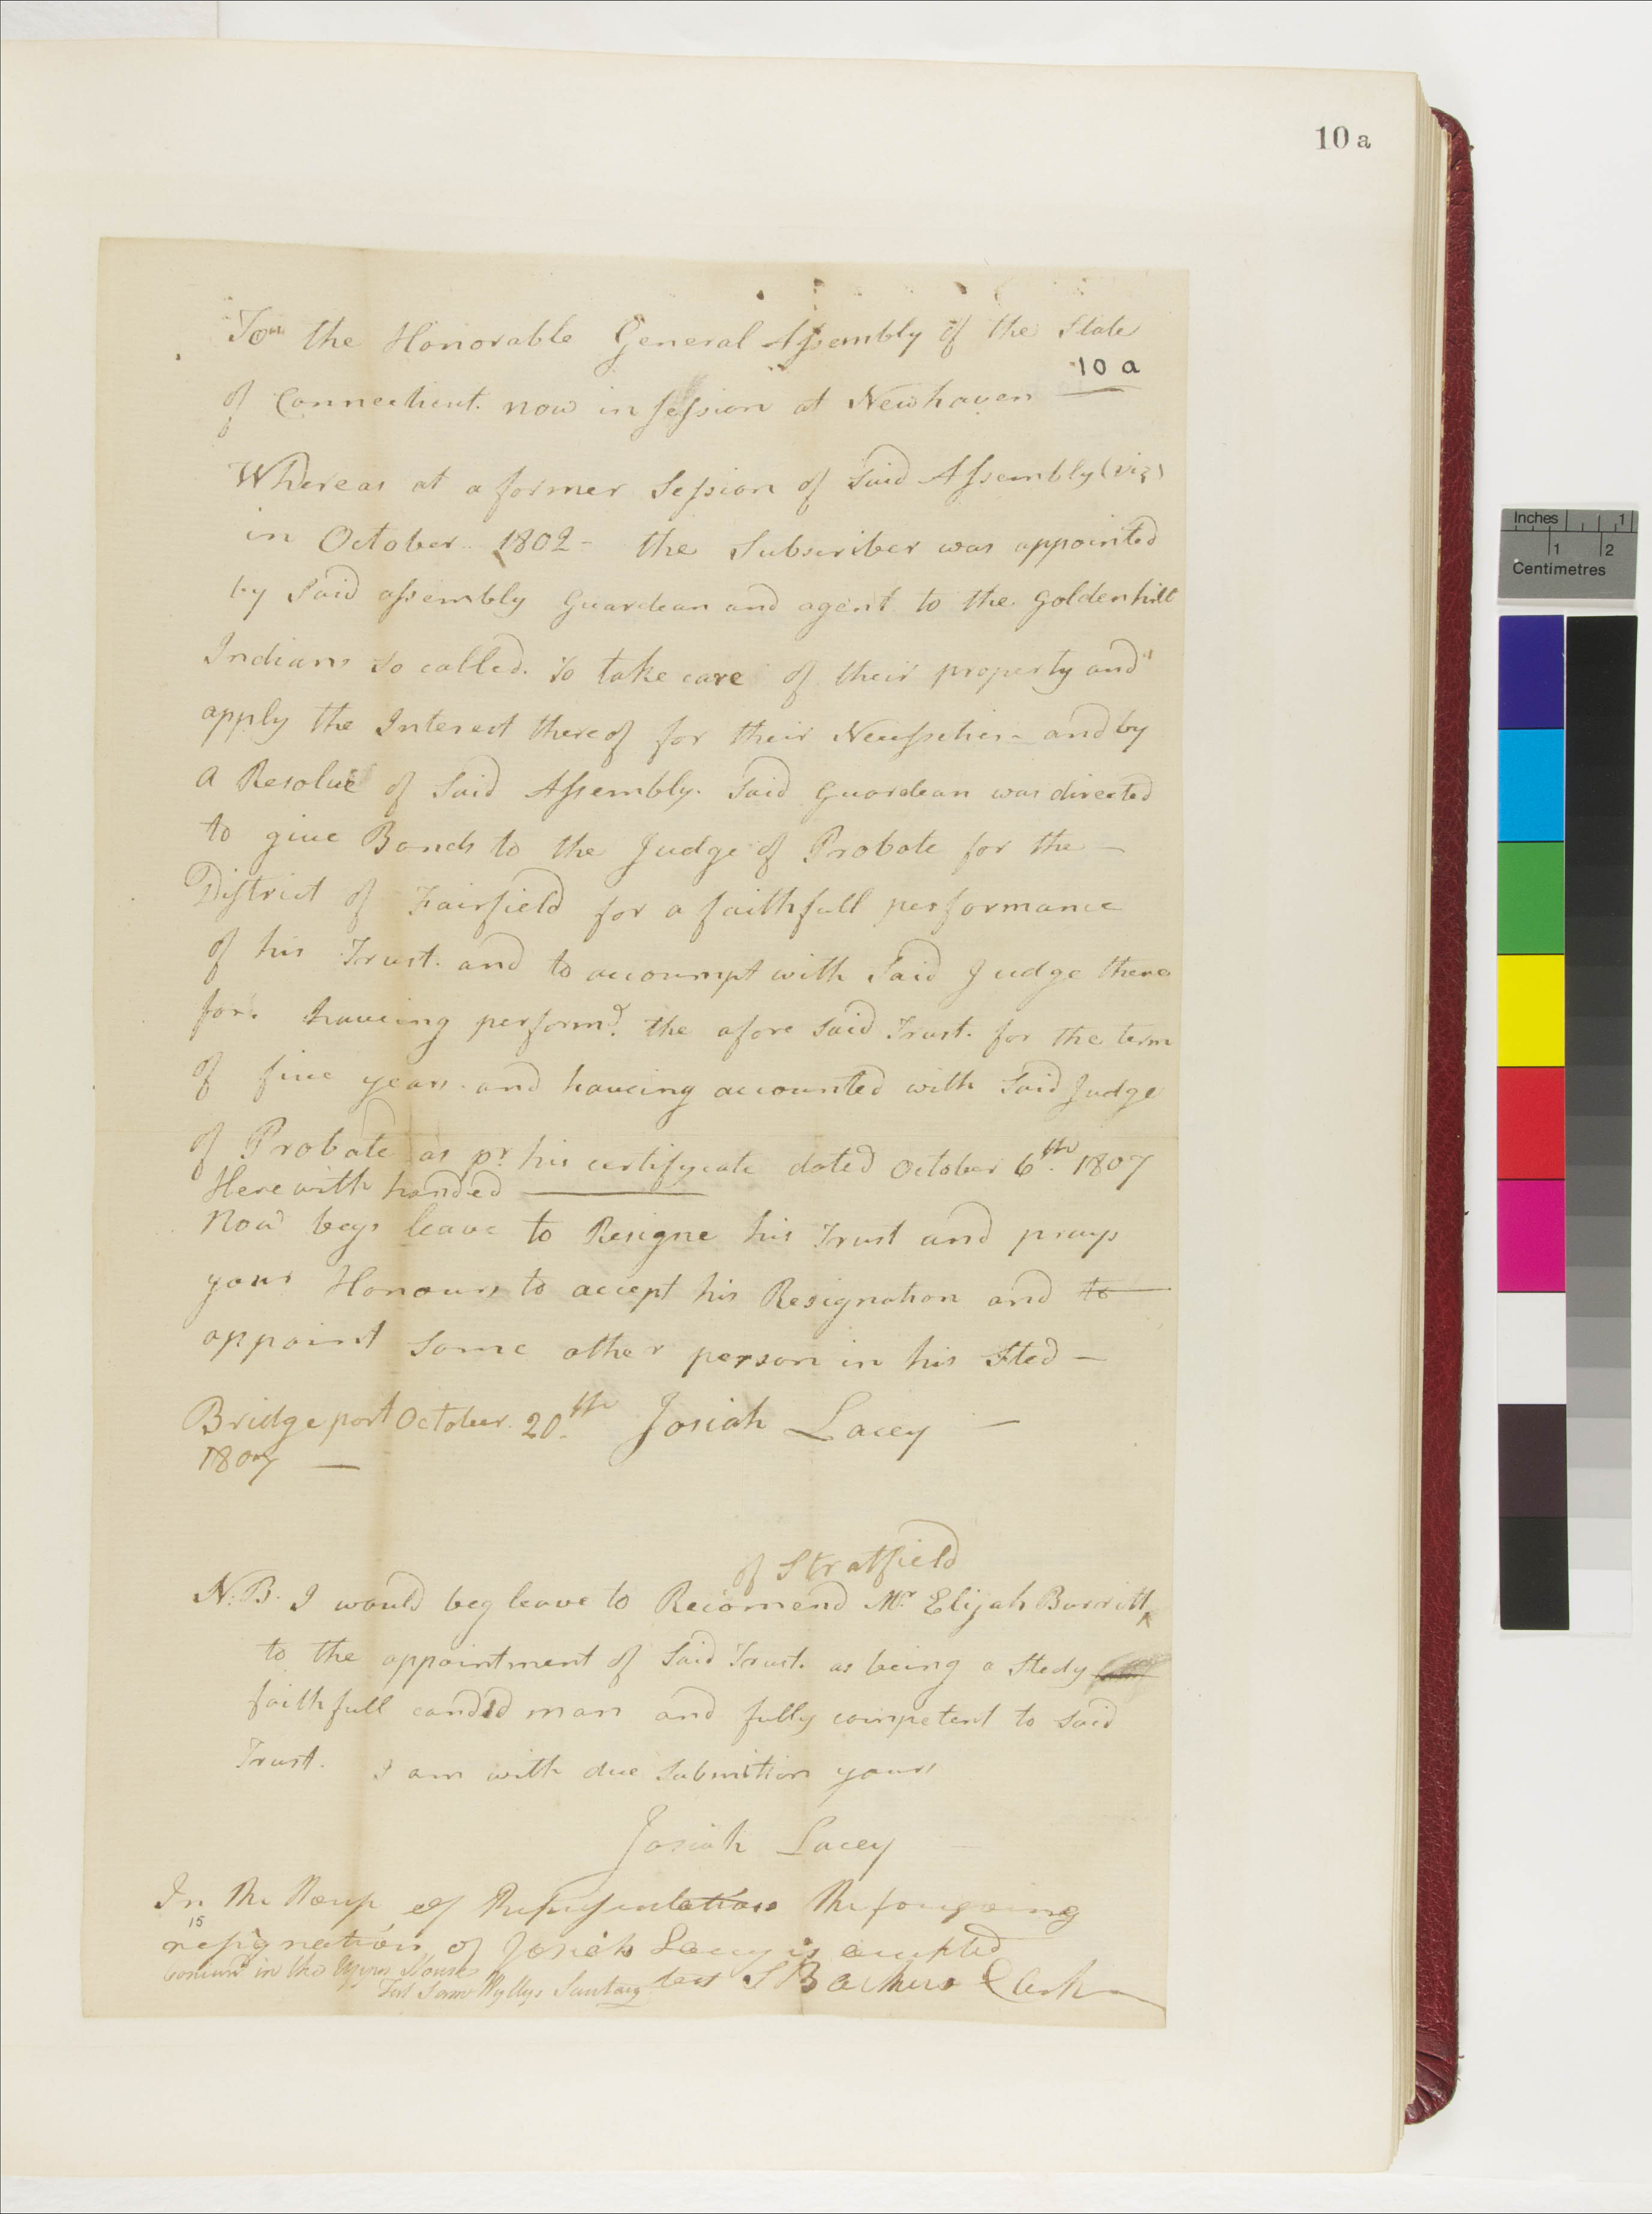 10 a
To the Honorable General Assembly of the State
10 a
of Connecticut. now in session at Newhaven
Whereas at a former Session of Said Assembly (viz)
in October 1802 - the Subscriber was appointed
by Said assembly Guardean and agent to the Goldenhill
Indians So called. to take care of their property and
apply the Interest thereof for their - and by
a Resolve of Said Assembly. Said Guardean was directed
to give Bonds to the Judge of Probate for the —
District of Fairfield for a faithfull performance
of his Trust. and to accompt with Said Judge there
for. haveing performd. the afore Said Trust. for the term
of five years. and haveing accounted with Said Judge
of Probate as pr. his certifycate dated October 6th. 1807
Herewith handed ———
Now begs leave to Resigne his Trust and prays
your Honours to accept his Resignation and to
appoint Some other person in his Sted —
Bridgeport October. 20th Josiah Lacey —
1807 —
of Stratfield
N.B. I would beg leave to Recomend Mr Elijah Burritt ^
to the appointment of Said Trust. as being a Stedy
faithfull candid man and fully competent to Said
Trust. I am with due Submition yours
Josiah Lacey
In the House of Representatives the foregoing
15
resignation of Josiah Lacey is accepted
Concurd in the Upper House
test S Backus Clerk
Test Sam Wyllys Secretary